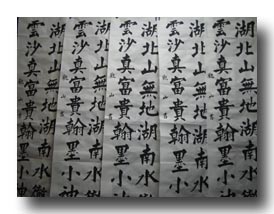 湖北山無地湖南水
雲沙真富貴翰墨小神
湖北山無地湖南水
雲沙真富貴翰墨小神
湖北山無地湖南水
雲沙真富貴翰墨小神
湖北山無地湖南水
雲沙真富貴翰墨小神
湖北山無地湖南水
雲沙真富貴翰墨小神